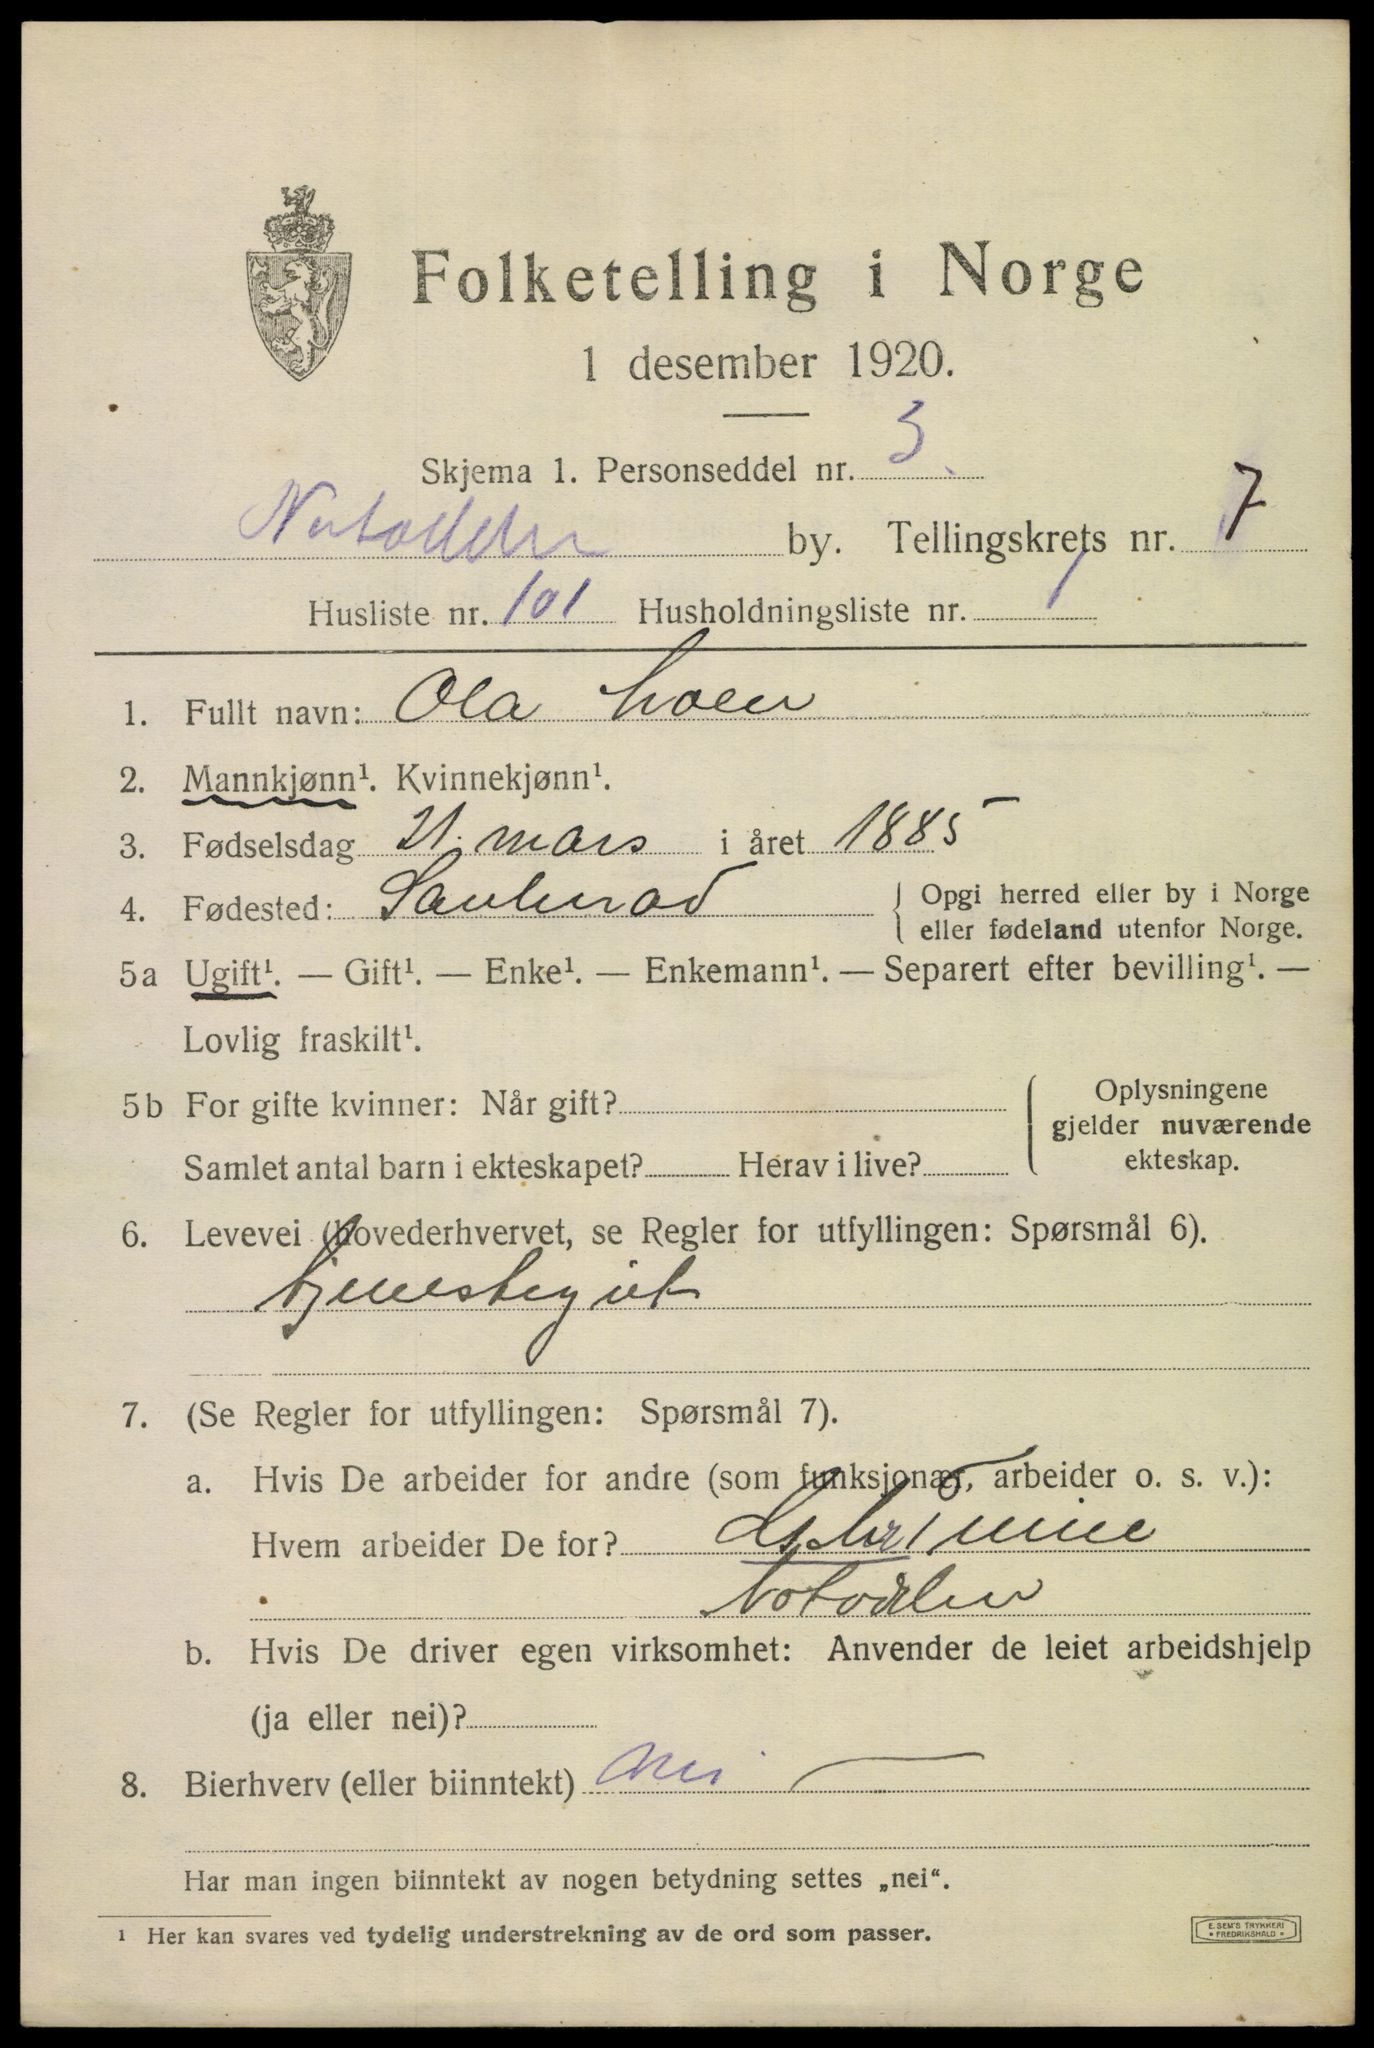 Folketelling i Norge
1 desember 1920.
Skjema 1. Personseddel nr. 3.
Notodden by. Tellingskrets nr. 7
Husliste nr. 101 Husholdningsliste nr. 1
1. Fullt navn: Ola Moen
2. Mannkjønn¹. Kvinnekjønn¹.
3. Fødselsdag 21. mars i året 1885
4. Fødested: Sauherad { Opgi herred eller by i Norge
eller fødeland utenfor Norge.
5a Ugift¹. — Gift¹. — Enke¹. — Enkemann¹. — Separert efter bevilling¹. —
Lovlig fraskilt¹.
5b For gifte kvinner: Når gift? { Oplysningene
gjelder nuværende
Samlet antal barn i ekteskapet? Herav i live?
ekteskap.
6. Levevei (hovederhvervet, se Regler for utfyllingen: Spørsmål 6).
tjenestegut
7. (Se Regler for utfyllingen: Spørsmål 7).
a. Hvis De arbeider for andre (som funksjonær, arbeider o. s. v.):
Hvem arbeider De for?
Notodden
b. Hvis De driver egen virksomhet: Anvender de leiet arbeidshjelp
(ja eller nei)?
8. Bierhverv (eller biinntekt) nei —
Har man ingen biinntekt av nogen betydning settes „nei“.
¹ Her kan svares ved tydelig understrekning av de ord som passer.
E. SEM'S TRYKKERI
• FREDRIKSHALD •